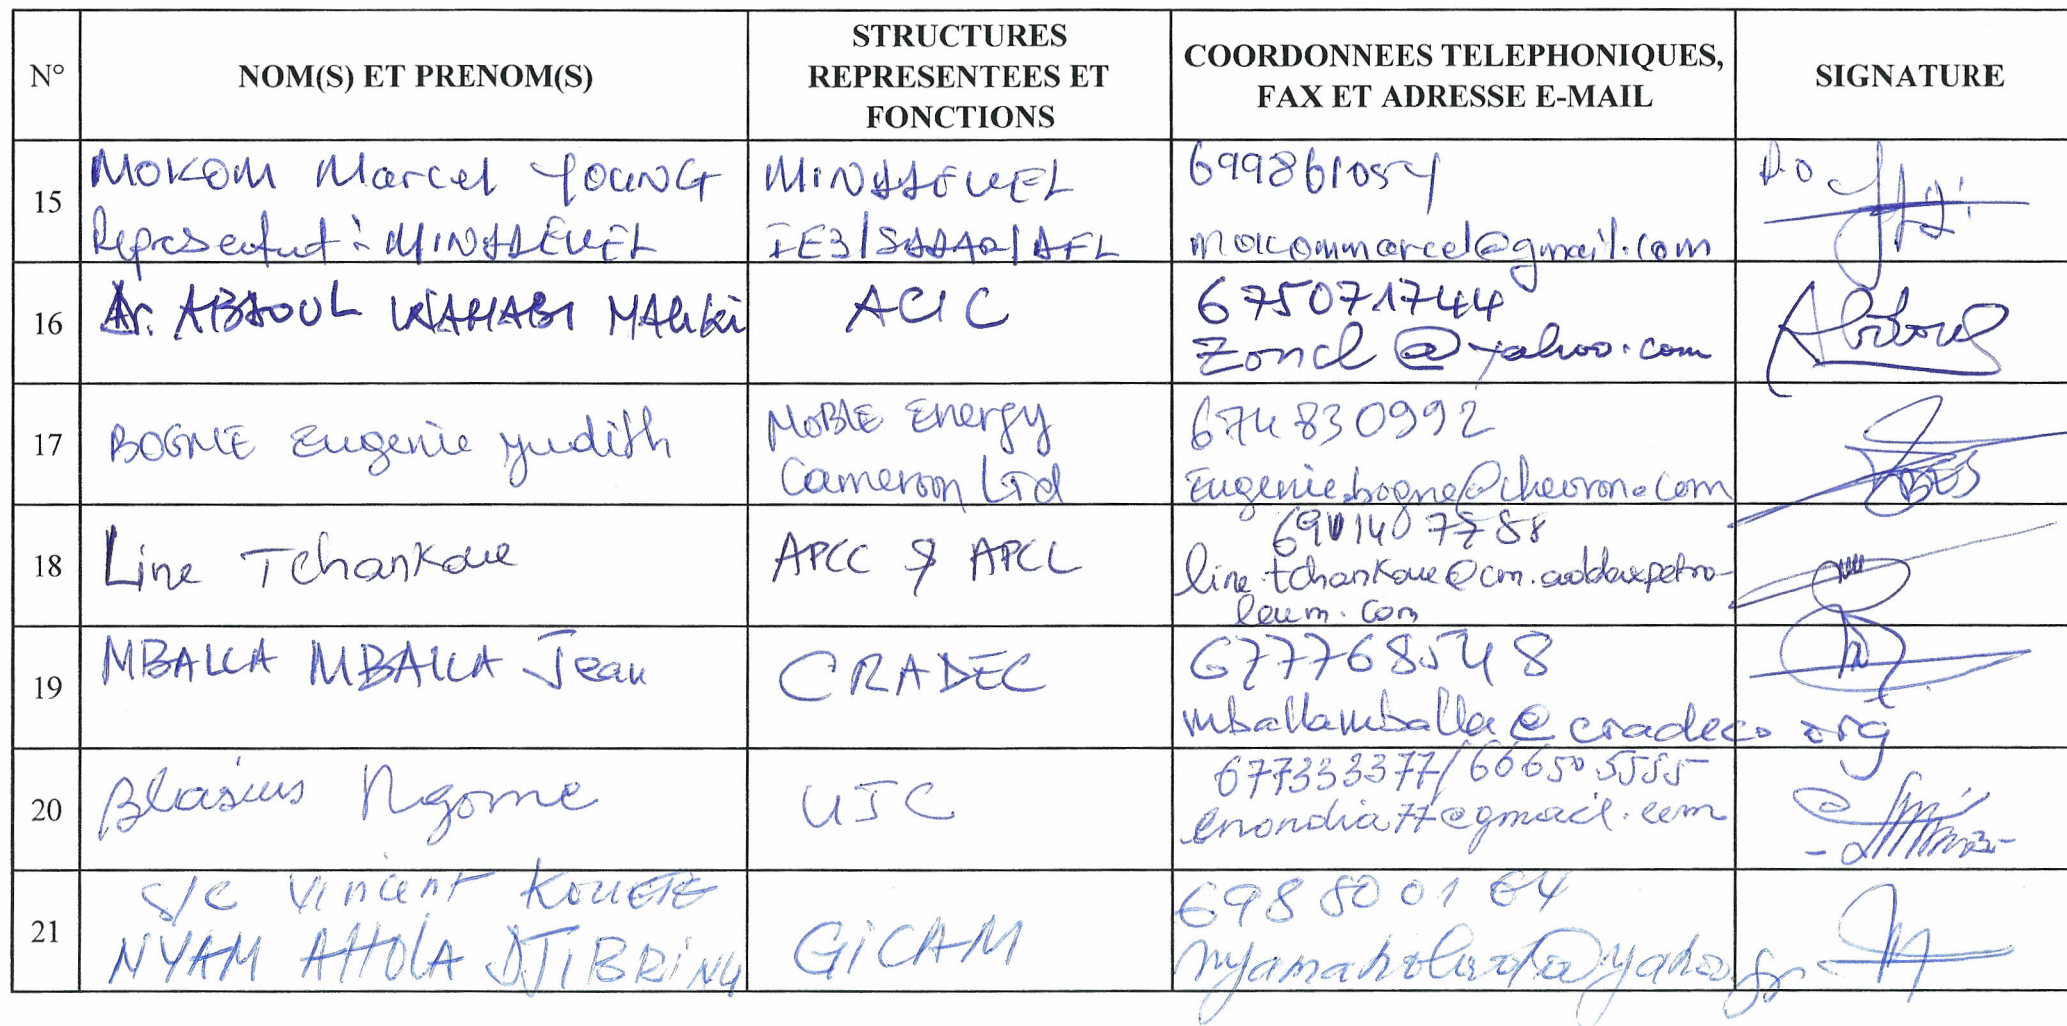 N°
NOM(S) ET PRENOM(S)
STRUCTURES
REPRESENTEES ET
FONCTIONS
COORDONNEES TELEPHONIQUES,
FAX ET ADRESSE E-MAIL
SIGNATURE
15
MOKOM Marcel YOUNG
Representant : MINDDEVEL
MINDDEVEL
699861054
mokommarcel@gmail.com
P.O
16
ABDOUL WAHABI
ACIC
675071744
@yahoo.com
17
BOGNE Eugenie Judith
NOBLE Energy
Cameroon Ltd
674830992
Eugenie.bogne@chevron.com
18
Line Tchankoue
APCC & APCL
line.tchankoue@cm.addaxpetro-
leum.com
19
MBALLA MBALLA Jean
CRADEC
677768548
mballamballa@cradec.org
20
Blasius Ngome
UJC
677333377/666505555
enondia77@gmail.com
21
S/C Vincent KOUETE
NYAM AHOLA DJIBRING
GICAM
698800164